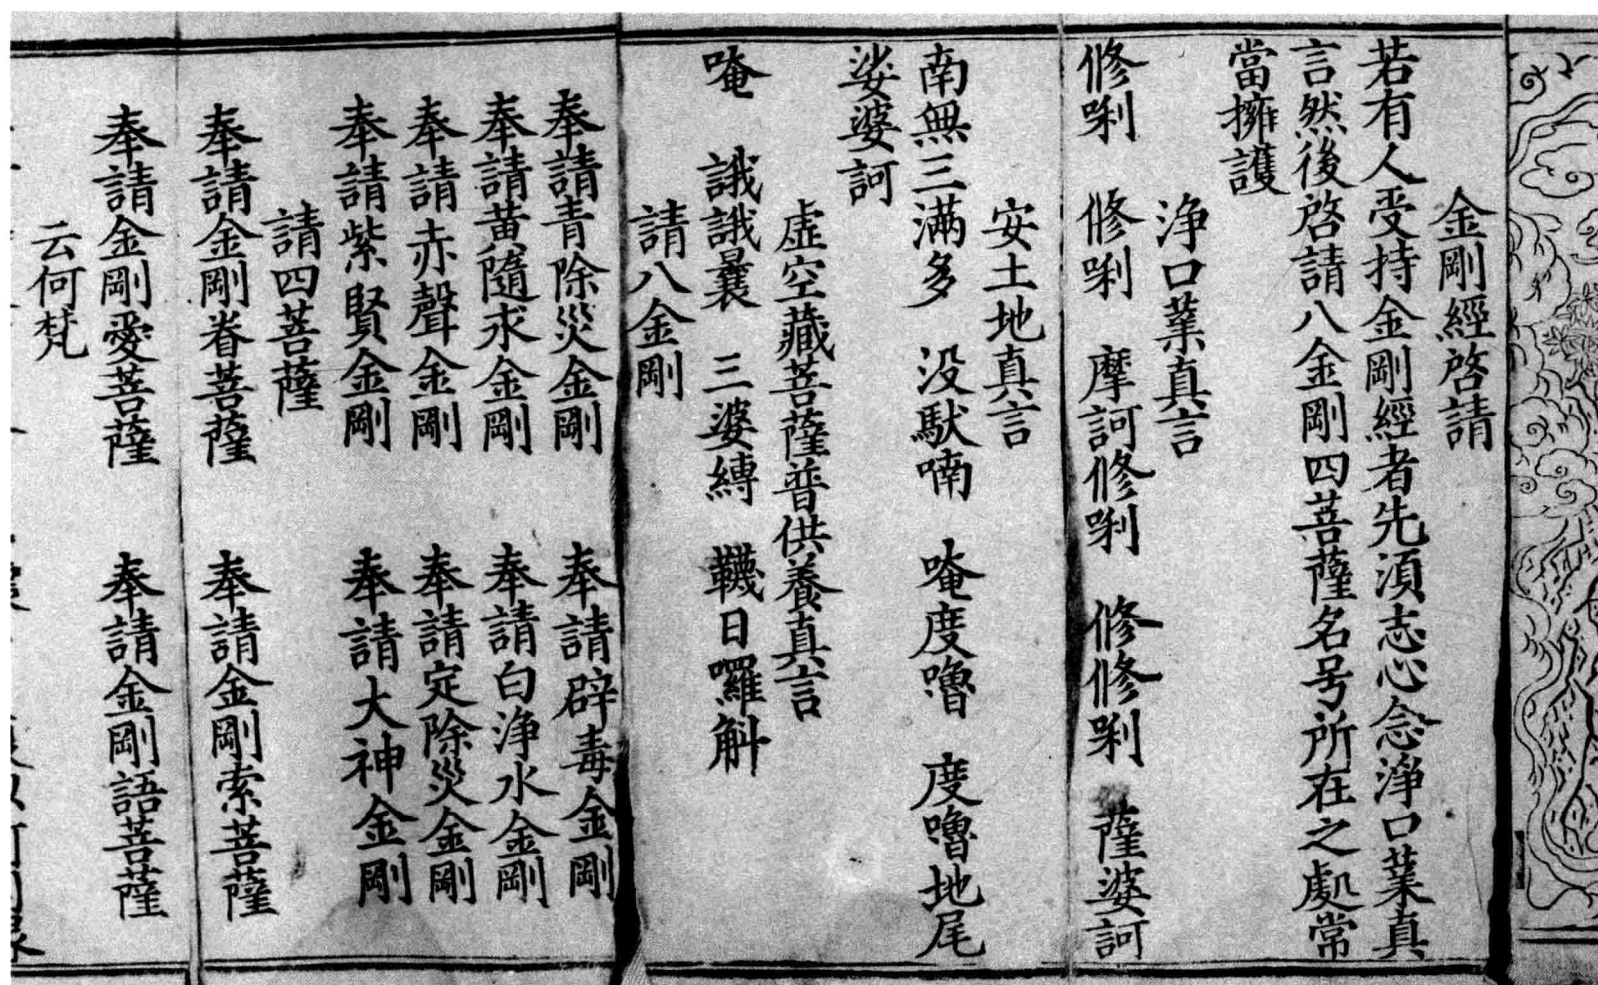 金剛經啓請
若有人受持金剛經者先湏志心念淨口業真
言然後啓請八金剛四菩薩名号所在之處常
當擁護
淨口業真言
修唎 修唎 摩訶修唎 修修唎 薩婆訶
安土地真言
南無三滿多 没馱喃 唵度嚕 度嚕地尾
娑婆訶
虛空藏菩薩普供養真言
唵 誐誐曩 三婆縛 韈日囉斛
請八金剛
奉請青除災金剛 奉請辟毒金剛
奉請黄隨求金剛 奉請白淨水金剛
奉請赤聲金剛 奉請定除災金剛
奉請紫賢金剛 奉請大神金剛
請四菩薩
奉請金剛眷菩薩 奉請金剛索菩薩
奉請金剛愛菩薩 奉請金剛語菩薩
云何梵